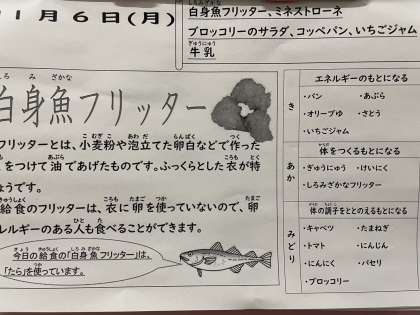 １月６日(月)
白身魚フリッター、ミネストローネ
ブロッコリーのサラダ、コッペパン、いちごジャム
牛乳
白身魚フリッター
フリッターとは、小麦粉や泡立てた卵白などで作った
をつけて油であげたものです。ふっくらとした衣が特
ょうです。
給食のフリッターは、衣に卵を使っていないので、卵
レルギーのある人も食べることができます。
今日の給食の「白身魚フリッター」は、
「たら」を使っています。
エネルギーのもとになる
き
・パン ・あぶら
・オリーブゆ ・さとう
・いちごジャム
体をつくるもとになる
あか
・ぎゅうにゅう ・けいにく
・しろみざかなフリッター
体の調子をととのえるもとになる
みどり
・キャベツ ・たまねぎ
・トマト ・にんじん
・にんにく ・パセリ
・ブロッコリー